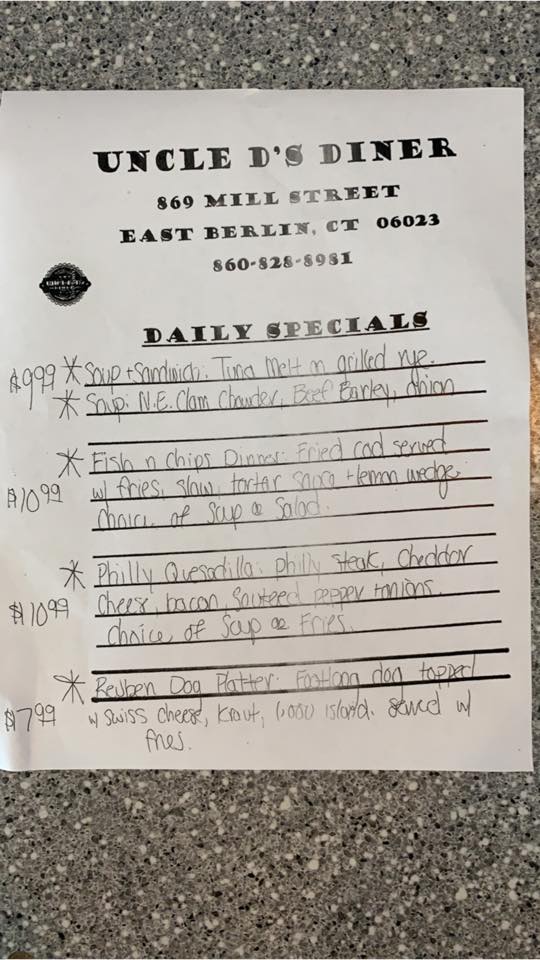 UNCLE D'S DINER
869 MILL STREET
EAST BERLIN, CT 06023
860-828-8981
DAILY SPECIALS
$9.99 * Soup + Sandwich: Tuna Melt on grilled rye.
* Soup: N.E. Clam Chowder, Beef Barley, Onion
* Fish n Chips Dinner: Fried cod served
$10.99 w/ fries, slaw, tartar sauce + lemon wedge.
Choice of Soup or Salad.
* Philly Quesadilla: Philly steak, Cheddar
$10.99 cheese, bacon, Sauteed pepper + onions.
Choice of Soup or Fries.
* Reuben Dog Platter: Footlong dog topped
$7.99 w/ swiss cheese, kraut, 1,000 island. Served w/
fries.